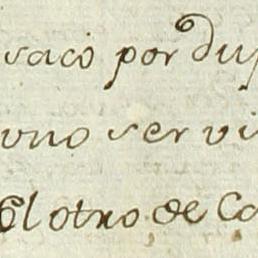 saco por dup
uno ser vi
el otro de Ca